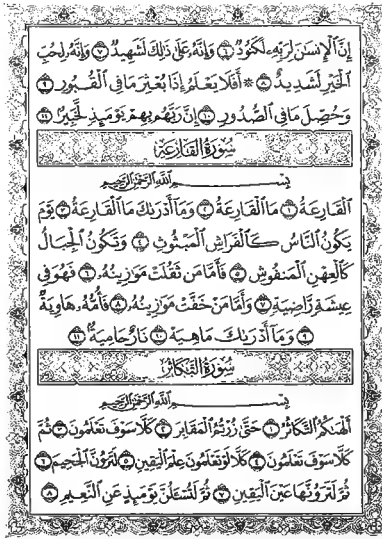 إِنَّ ٱلْإِنسَٰنَ لِرَبِّهِۦ لَكَنُودٌ ٦ وَإِنَّهُۥ عَلَىٰ ذَٰلِكَ لَشَهِيدٌ ٧ وَإِنَّهُۥ لِحُبِّ
ٱلْخَيْرِ لَشَدِيدٌ ٨ ۞ أَفَلَا يَعْلَمُ إِذَا بُعْثِرَ مَا فِي ٱلْقُبُورِ ٩
وَحُصِّلَ مَا فِي ٱلصُّدُورِ ١٠ إِنَّ رَبَّهُم بِهِمْ يَوْمَئِذٍ لَّخَبِيرٌ ١١
سُورَةُ القَارِعَةِ
بِسْمِ ٱللَّهِ ٱلرَّحْمَٰنِ ٱلرَّحِيمِ
ٱلْقَارِعَةُ ١ مَا ٱلْقَارِعَةُ ٢ وَمَآ أَدْرَىٰكَ مَا ٱلْقَارِعَةُ ٣ يَوْمَ
يَكُونُ ٱلنَّاسُ كَٱلْفَرَاشِ ٱلْمَبْثُوثِ ٤ وَتَكُونُ ٱلْجِبَالُ
كَٱلْعِهْنِ ٱلْمَنفُوشِ ٥ فَأَمَّا مَن ثَقُلَتْ مَوَٰزِينُهُۥ ٦ فَهُوَ فِي
عِيشَةٍ رَّاضِيَةٍ ٧ وَأَمَّا مَنْ خَفَّتْ مَوَٰزِينُهُۥ ٨ فَأُمُّهُۥ هَاوِيَةٌ
٩ وَمَآ أَدْرَىٰكَ مَا هِيَهْ ١٠ نَارٌ حَامِيَةٌۢ ١١
سُورَةُ التَّكَاثُرِ
بِسْمِ ٱللَّهِ ٱلرَّحْمَٰنِ ٱلرَّحِيمِ
أَلْهَىٰكُمُ ٱلتَّكَاثُرُ ١ حَتَّىٰ زُرْتُمُ ٱلْمَقَابِرَ ٢ كَلَّا سَوْفَ تَعْلَمُونَ ٣ ثُمَّ
كَلَّا سَوْفَ تَعْلَمُونَ ٤ كَلَّا لَوْ تَعْلَمُونَ عِلْمَ ٱلْيَقِينِ ٥ لَتَرَوُنَّ ٱلْجَحِيمَ ٦
ثُمَّ لَتَرَوُنَّهَا عَيْنَ ٱلْيَقِينِ ٧ ثُمَّ لَتُسْـَٔلُنَّ يَوْمَئِذٍ عَنِ ٱلنَّعِيمِ ٨